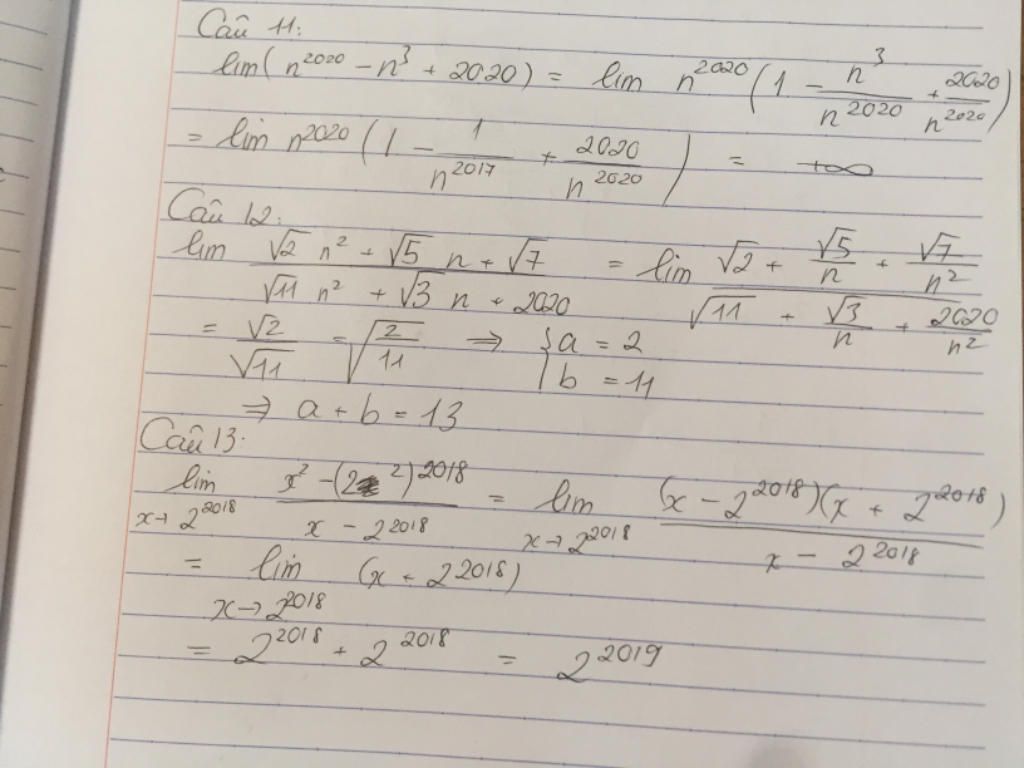 Câu 11:
lim( n^2020 - n^3 + 2020) = lim n^2020 (1 - n^3/n^2020 + 2020/n^2020)
= lim n^2020 (1 - 1/n^2017 + 2020/n^2020) = +∞
Câu 12:
lim (√2 n² + √5 n + √7)/(√11 n² + √3 n + 2020) = lim (√2 + √5/n + √7/n²)/(√11 + √3/n + 2020/n²)
= √2/√11 = √(2/11) ⇒ { a = 2
b = 11
⇒ a + b = 13
Câu 13:
lim x→2^2018 (x² - (2²)^2018)/(x - 2^2018) = lim x→2^2018 ((x - 2^2018)(x + 2^2018))/(x - 2^2018)
= lim x→2^2018 (x + 2^2018)
= 2^2018 + 2^2018 = 2^2019